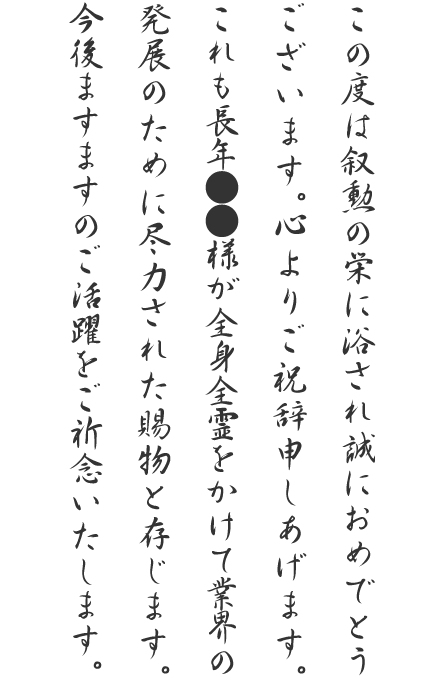 この度は叙勲の栄に浴され誠におめでとう
ございます。心よりご祝辞申しあげます。
これも長年●●様が全身全霊をかけて業界の
発展のために尽力された賜物と存じます。
今後ますますのご活躍をご祈念いたします。